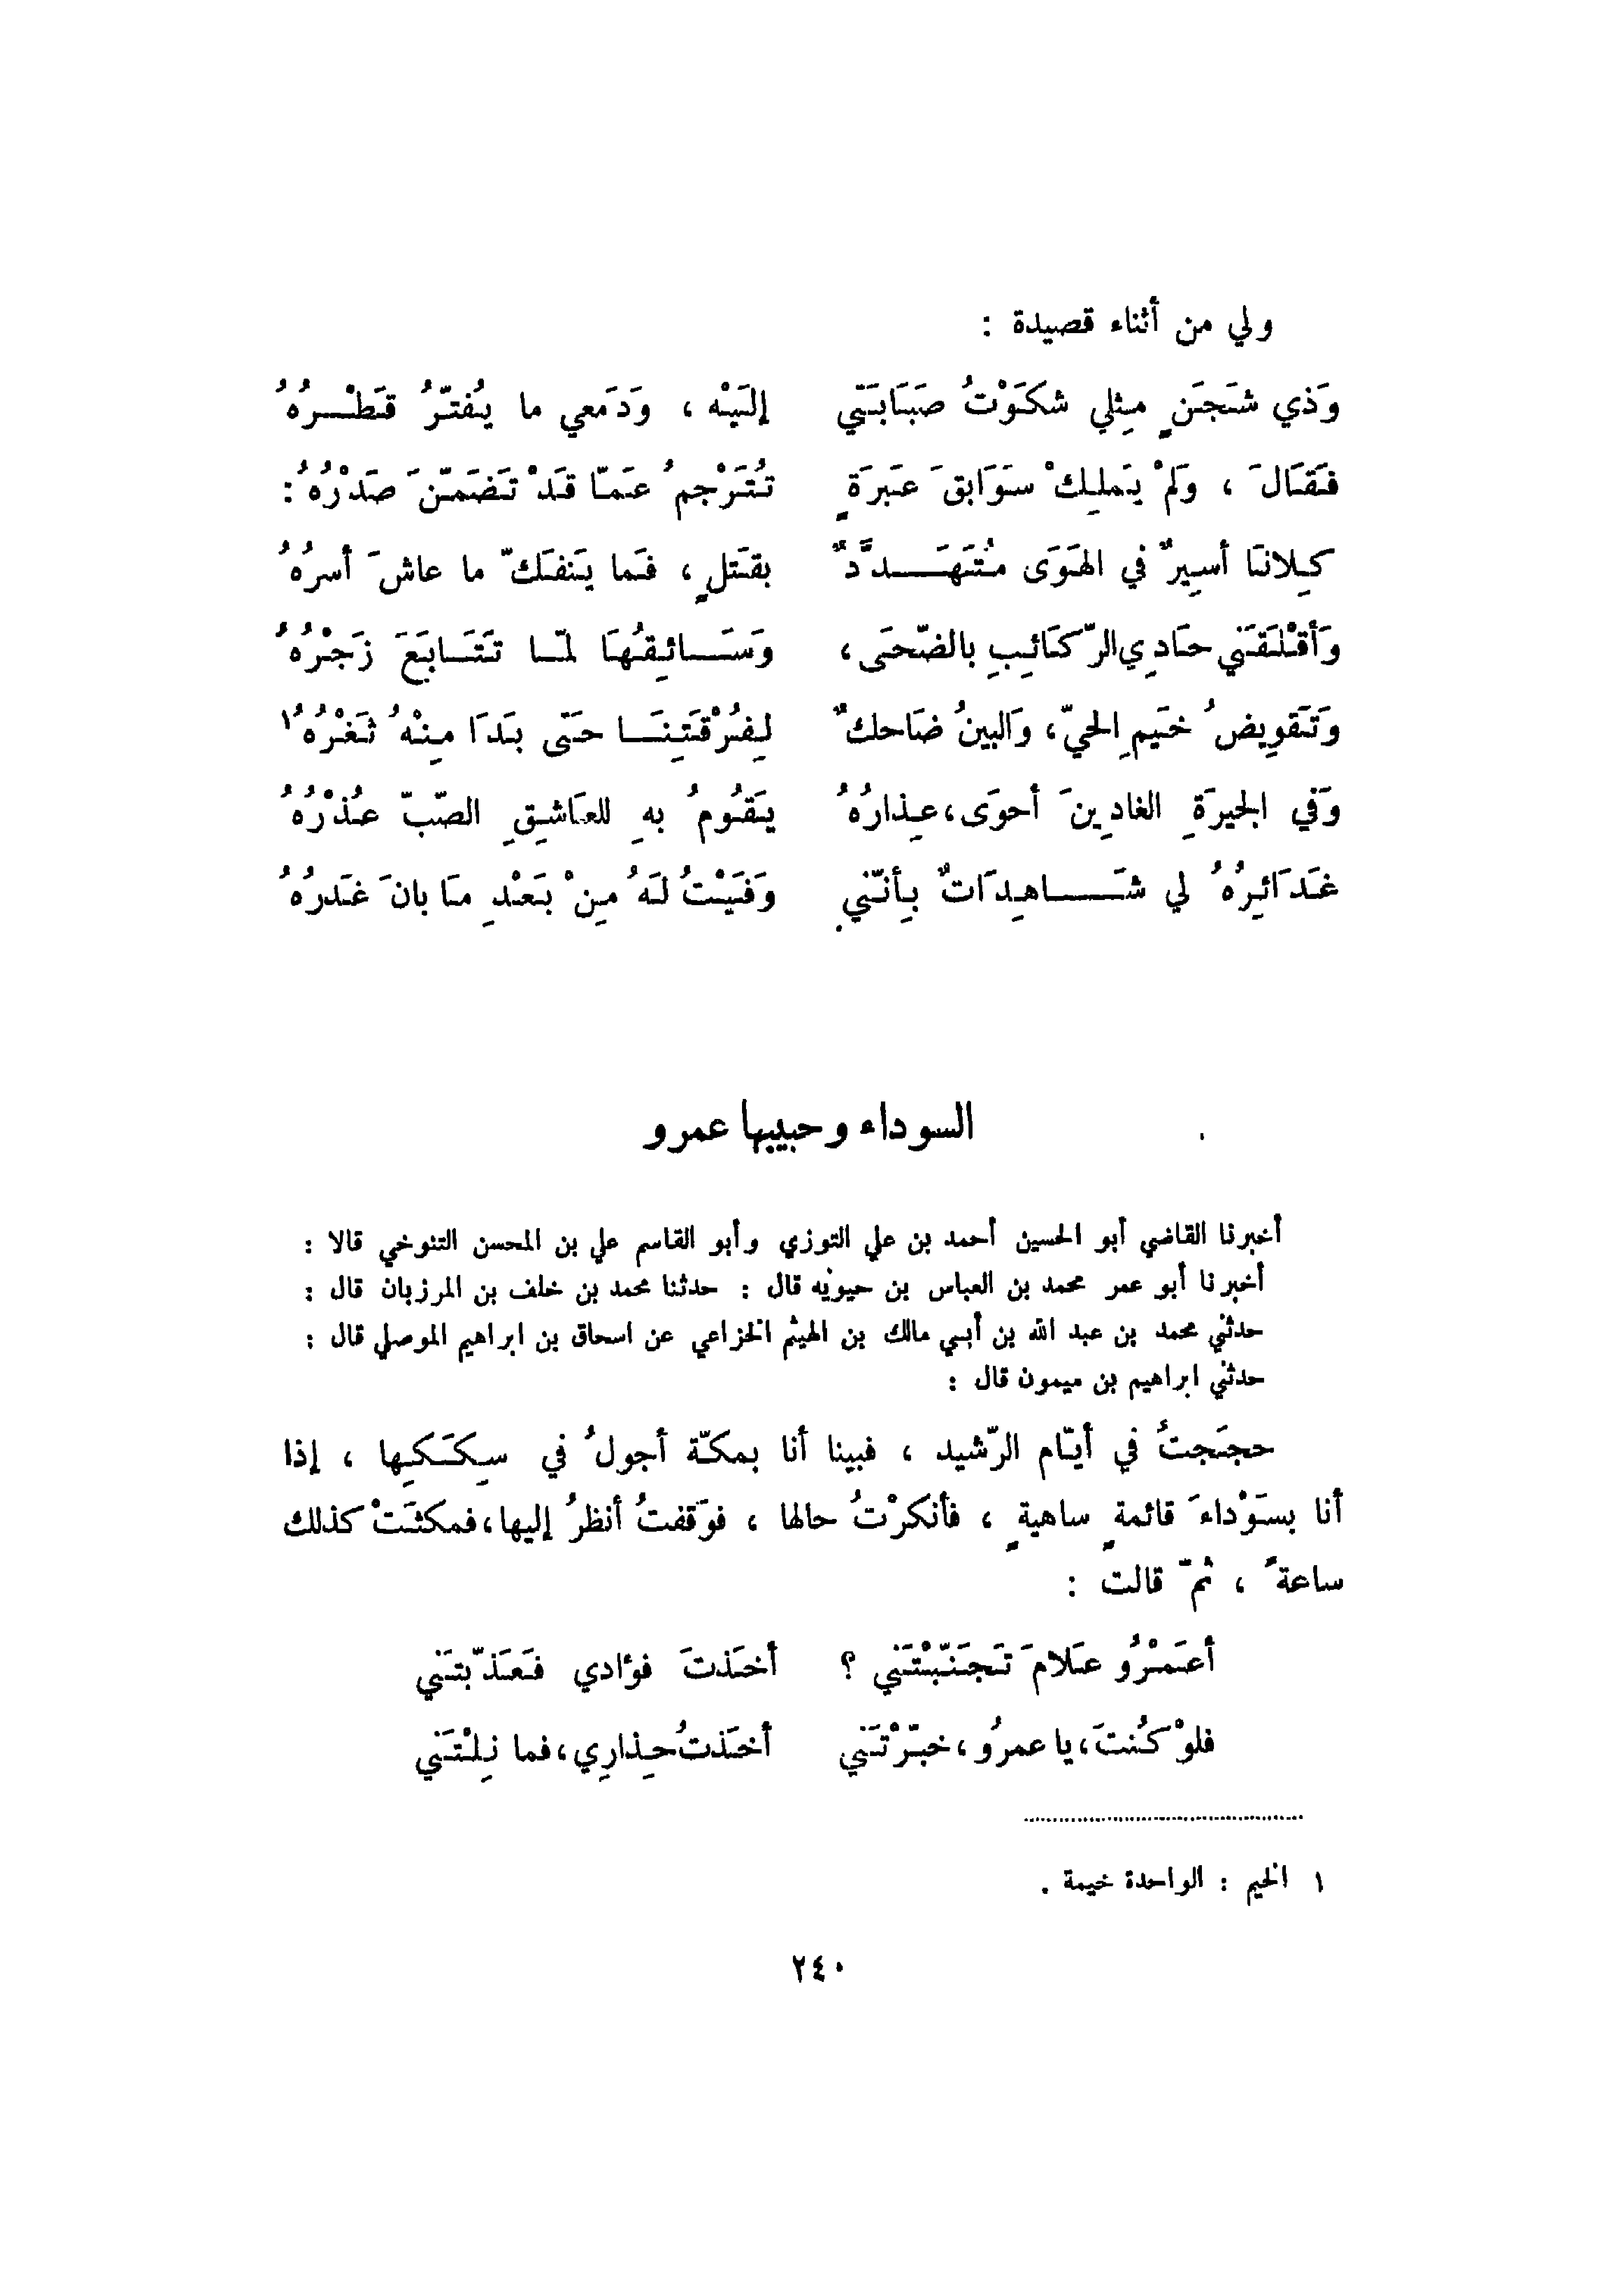 ولي من أثناء قصيدة :
وَذي شَجَنٍ مِثلي شكَوْتُ صَبَابَتي إلَيْه ، وَدَمعي ما يُفتّرُ قَطْرُهُ
فَقَالَ ، وَلمْ يَملِكْ سَوَابقَ عَبرَةٍ تُتَرْجمُ عَمّا قَدْ تَضَمّنَ صَدْرُهُ :
كِلانَا أسِيرٌ في الهَوَى مُتَهَدَّدٌ بقَتلٍ ، فَما يَنفَكّ ما عاشَ أسرُهُ
وَأقْلَقَني حَادِي الرّكَائِبِ بالضّحَى ، وَسَائِقُهَا لمّا تَتَابَعَ زَجْرُهُ
وَتَقوِيضُ خيَمِ الحيّ ، وَالبينُ ضَاحكٌ لِفُرْقَتِنَا حَتّى بَدَا مِنْهُ ثَغْرُهُ١
وَفي الجيرَةِ الغادِينَ أحوَى ، عِذارُهُ يَقُومُ بهِ للعَاشِقِ الصّبّ عُذْرُهُ
غَدَائِرُهُ لي شَاهِدَاتٌ بِأنّني وَفَيْتُ لَهُ مِنْ بَعْدِ مَا بانَ غَدرُهُ
السوداء وحبيبها عمرو
أخبرنا القاضي أبو الحسين أحمد بن علي التوزي وأبو القاسم علي بن المحسن التنوخي قالا :
أخبرنا أبو عمر محمد بن العباس بن حيوَيْه قال : حدثنا محمد بن خلف بن المرزبان قال :
حدثني محمد بن عبد الله بن أبي مالك بن الهيثم الخزاعي عن اسحاق بن ابراهيم الموصلي قال :
حدثني ابراهيم بن ميمون قال :
حجَجتُ في أيّام الرّشيد ، فبينا أنا بمكّة أجولُ في سِكَكِها ، إذا
أنا بسَوْداءَ قائمةٍ ساهيةٍ ، فأنكرْتُ حالها ، فوَقفتُ أنظرُ إليها ، فمكثَتْ كذلك
ساعةً ، ثمّ قالت :
أعَمْرُو عَلامَ تَجَنّبْتَني ؟ أخَذتَ فوْادي فَعَذّبتَني
فلوْ كُنتَ ، يا عمرُو ، خبّرْتَني أخَذتُ حِذارِي ، فما نِلْتَني
١ الخيم : الواحدة خيمة .
٢٤٠